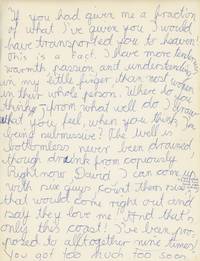 If you had given me a fraction
of what I've given you I would
have transported you to heaven!
This is a fact. I have more tender
warmth passion and understanding
in my little finger than most women
in their whole person. Where do you
think I from what well do I draw
what you feel, when you think I'm
being submissive? The well is
bottomless never been drained,
though drunk from copiously
Right now David I can come up
with six guys count them six
that would come right out and
say they love me! And that's
only this coast! I've been pro-
posed to alltogether nine times!
You got too much too soon